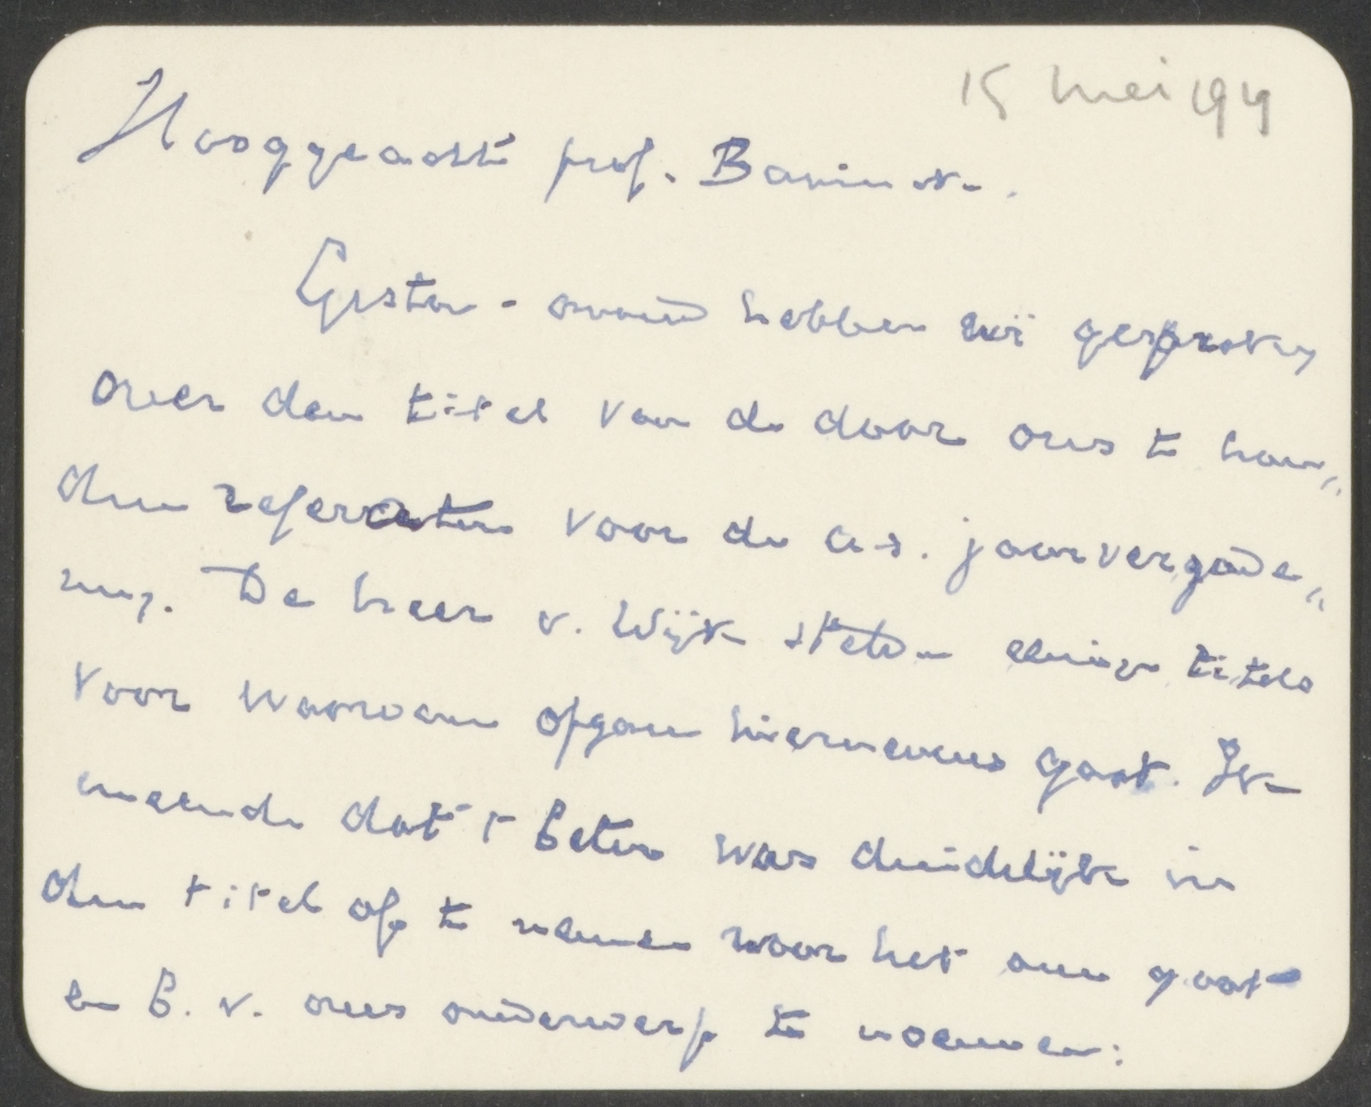 15 mei 1949
Hooggeachte prof. Bavinck.
Gister-avond hebben wij gesproken
over den titel van de door ons te hou„
den referaten voor de a.s. jaarvergade„
ring. De heer v. Wijk stelde eenige titels
voor waarvan opgave hiernevens gaat. Ik
meende dat 't beter was duidelijk in
den titel op te nemen waar het om gaat
en b.v. ons onderwerp te noemen: